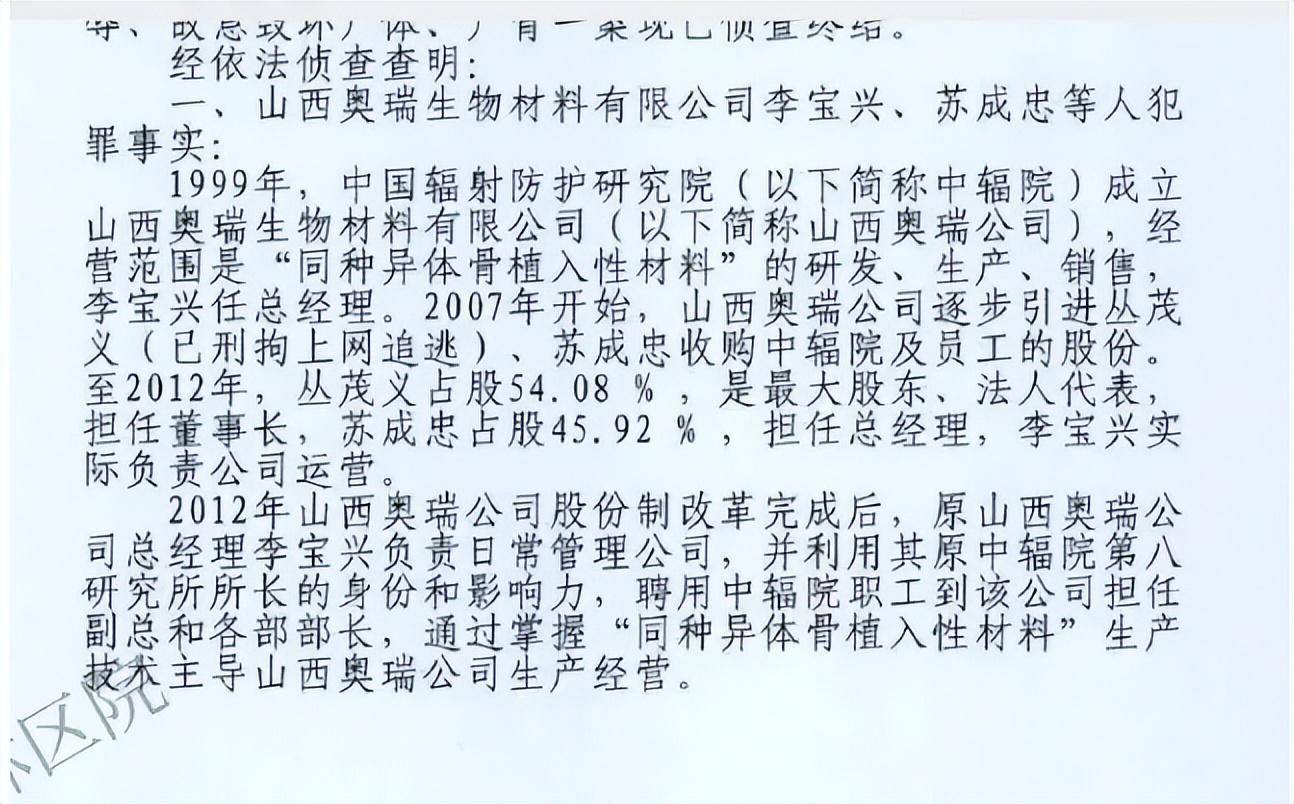 等、故意毁坏尸体、尸骨一案现已侦查终结。
经依法侦查查明：
一、山西奥瑞生物材料有限公司李宝兴、苏成忠等人犯
罪事实：
1999年，中国辐射防护研究院（以下简称中辐院）成立
山西奥瑞生物材料有限公司（以下简称山西奥瑞公司），经
营范围是“同种异体骨植入性材料”的研发、生产、销售，
李宝兴任总经理。2007年开始，山西奥瑞公司逐步引进丛茂
义（已刑拘上网追逃）、苏成忠收购中辐院及员工的股份。
至2012年，丛茂义占股54.08 %，是最大股东、法人代表，
担任董事长，苏成忠占股45.92 %，担任总经理，李宝兴实
际负责公司运营。
2012年山西奥瑞公司股份制改革完成后，原山西奥瑞公
司总经理李宝兴负责日常管理公司，并利用其原中辐院第八
研究所所长的身份和影响力，聘用中辐院职工到该公司担任
副总和各部部长，通过掌握“同种异体骨植入性材料”生产
技术主导山西奥瑞公司生产经营。
区院